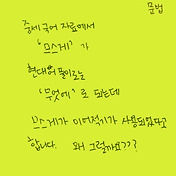 문법
중세국어 자료에서
'므스게'가
현대어 풀이로는
'무엇에'로 되는데
므스게가 이어적기가 사용되었다고
합니다. 왜 그럴까요???